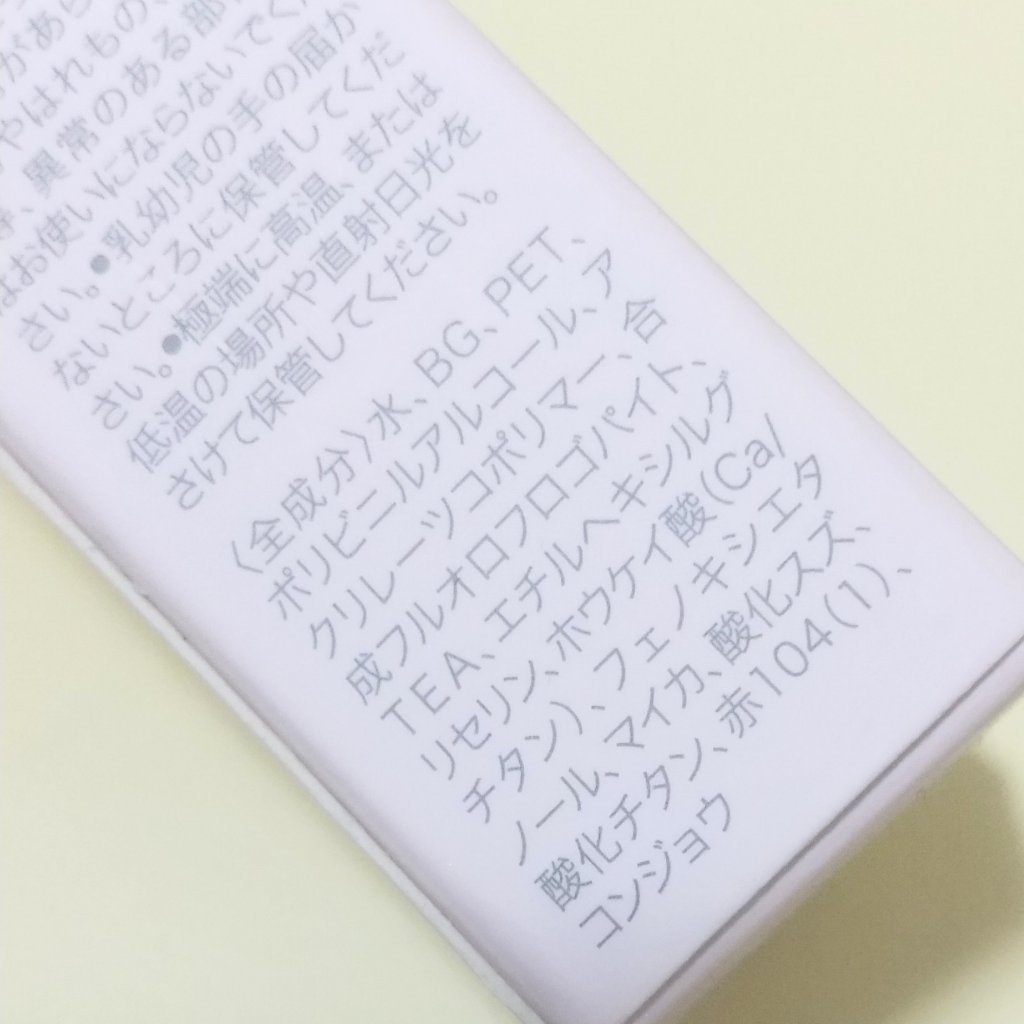 があ
やはれもの、
、異常のある部
はお使いにならないでくだ
さい。●乳幼児の手の届か
ないところに保管してくだ
さい。●極端に高温、または
低温の場所や直射日光を
さけて保管してください。
〈全成分〉水、BG、PET、
ポリビニルアルコール、ア
クリレーツコポリマー、合
成フルオロフロゴパイト、
TEA、エチルヘキシルグ
リセリン、ホウケイ酸(Ca/
チタン)、フェノキシエタ
ノール、マイカ、酸化スズ、
酸化チタン、赤104(1)、
コンジョウ